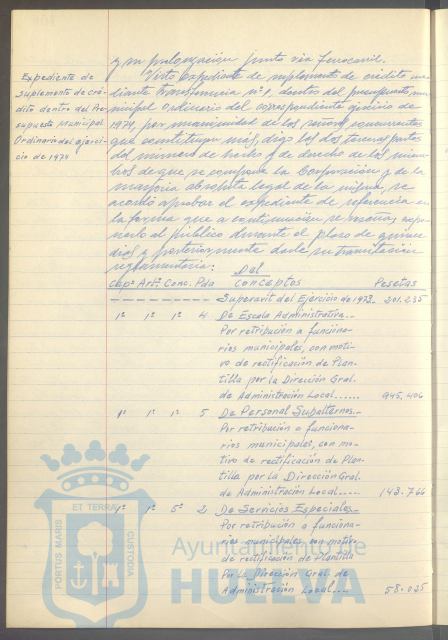 y su prolongación junto vía ferrocarril.
Expediente de
Suplemento de cré-
dito dentro del Pre-
supuesto Municipal
Ordinario del ejerci-
cio de 1974
Visto expediente de suplemento de crédito me-
diante transferencia nº 1, dentro del presupuesto mu-
nicipal Ordinario del correspondiente ejercicio de
1974, por unanimidad de los señores concurrentes
que constituyen más, digo las dos terceras partes
del número de hecho y de derecho de los miem-
bros de que se compone la Corporación y de la
mayoría absoluta legal de la misma, se
acordó aprobar el expediente de referencia en
la forma que a continuación se reseña, expo-
nerlo al público durante el plazo de quince
días y posteriormente darle su tramitación
reglamentaria:
Del
Capº Artº Conc. Pda Conceptos Pesetas
Superavit del Ejercicio de 1973. 201.235
1º 1º 1º 4 De Escala Administrativa.-
Por retribución a funciona-
rios municipales, con moti-
vo de rectificación de Plan-
tilla por la Dirección Gral.
de Administración Local...... 945,406
1º 1º 1º 5 De Personal Subalterno.-
Por retribución a funciona-
rios municipales, con mo-
tivo de rectificación de Plan-
tilla por la Dirección Gral.
de Administración Local..... 143.766
1º 1º 5º 2 De Servicios Especiales
Por retribución a funciona-
rios municipales con motivo
de rectificación de Plantilla
Por la Dirección Gral. de
Administración Local.... 58.035
PORTUS MARIS ET TERRAE CUSTODIA
Ayuntamiento de
HUELVA